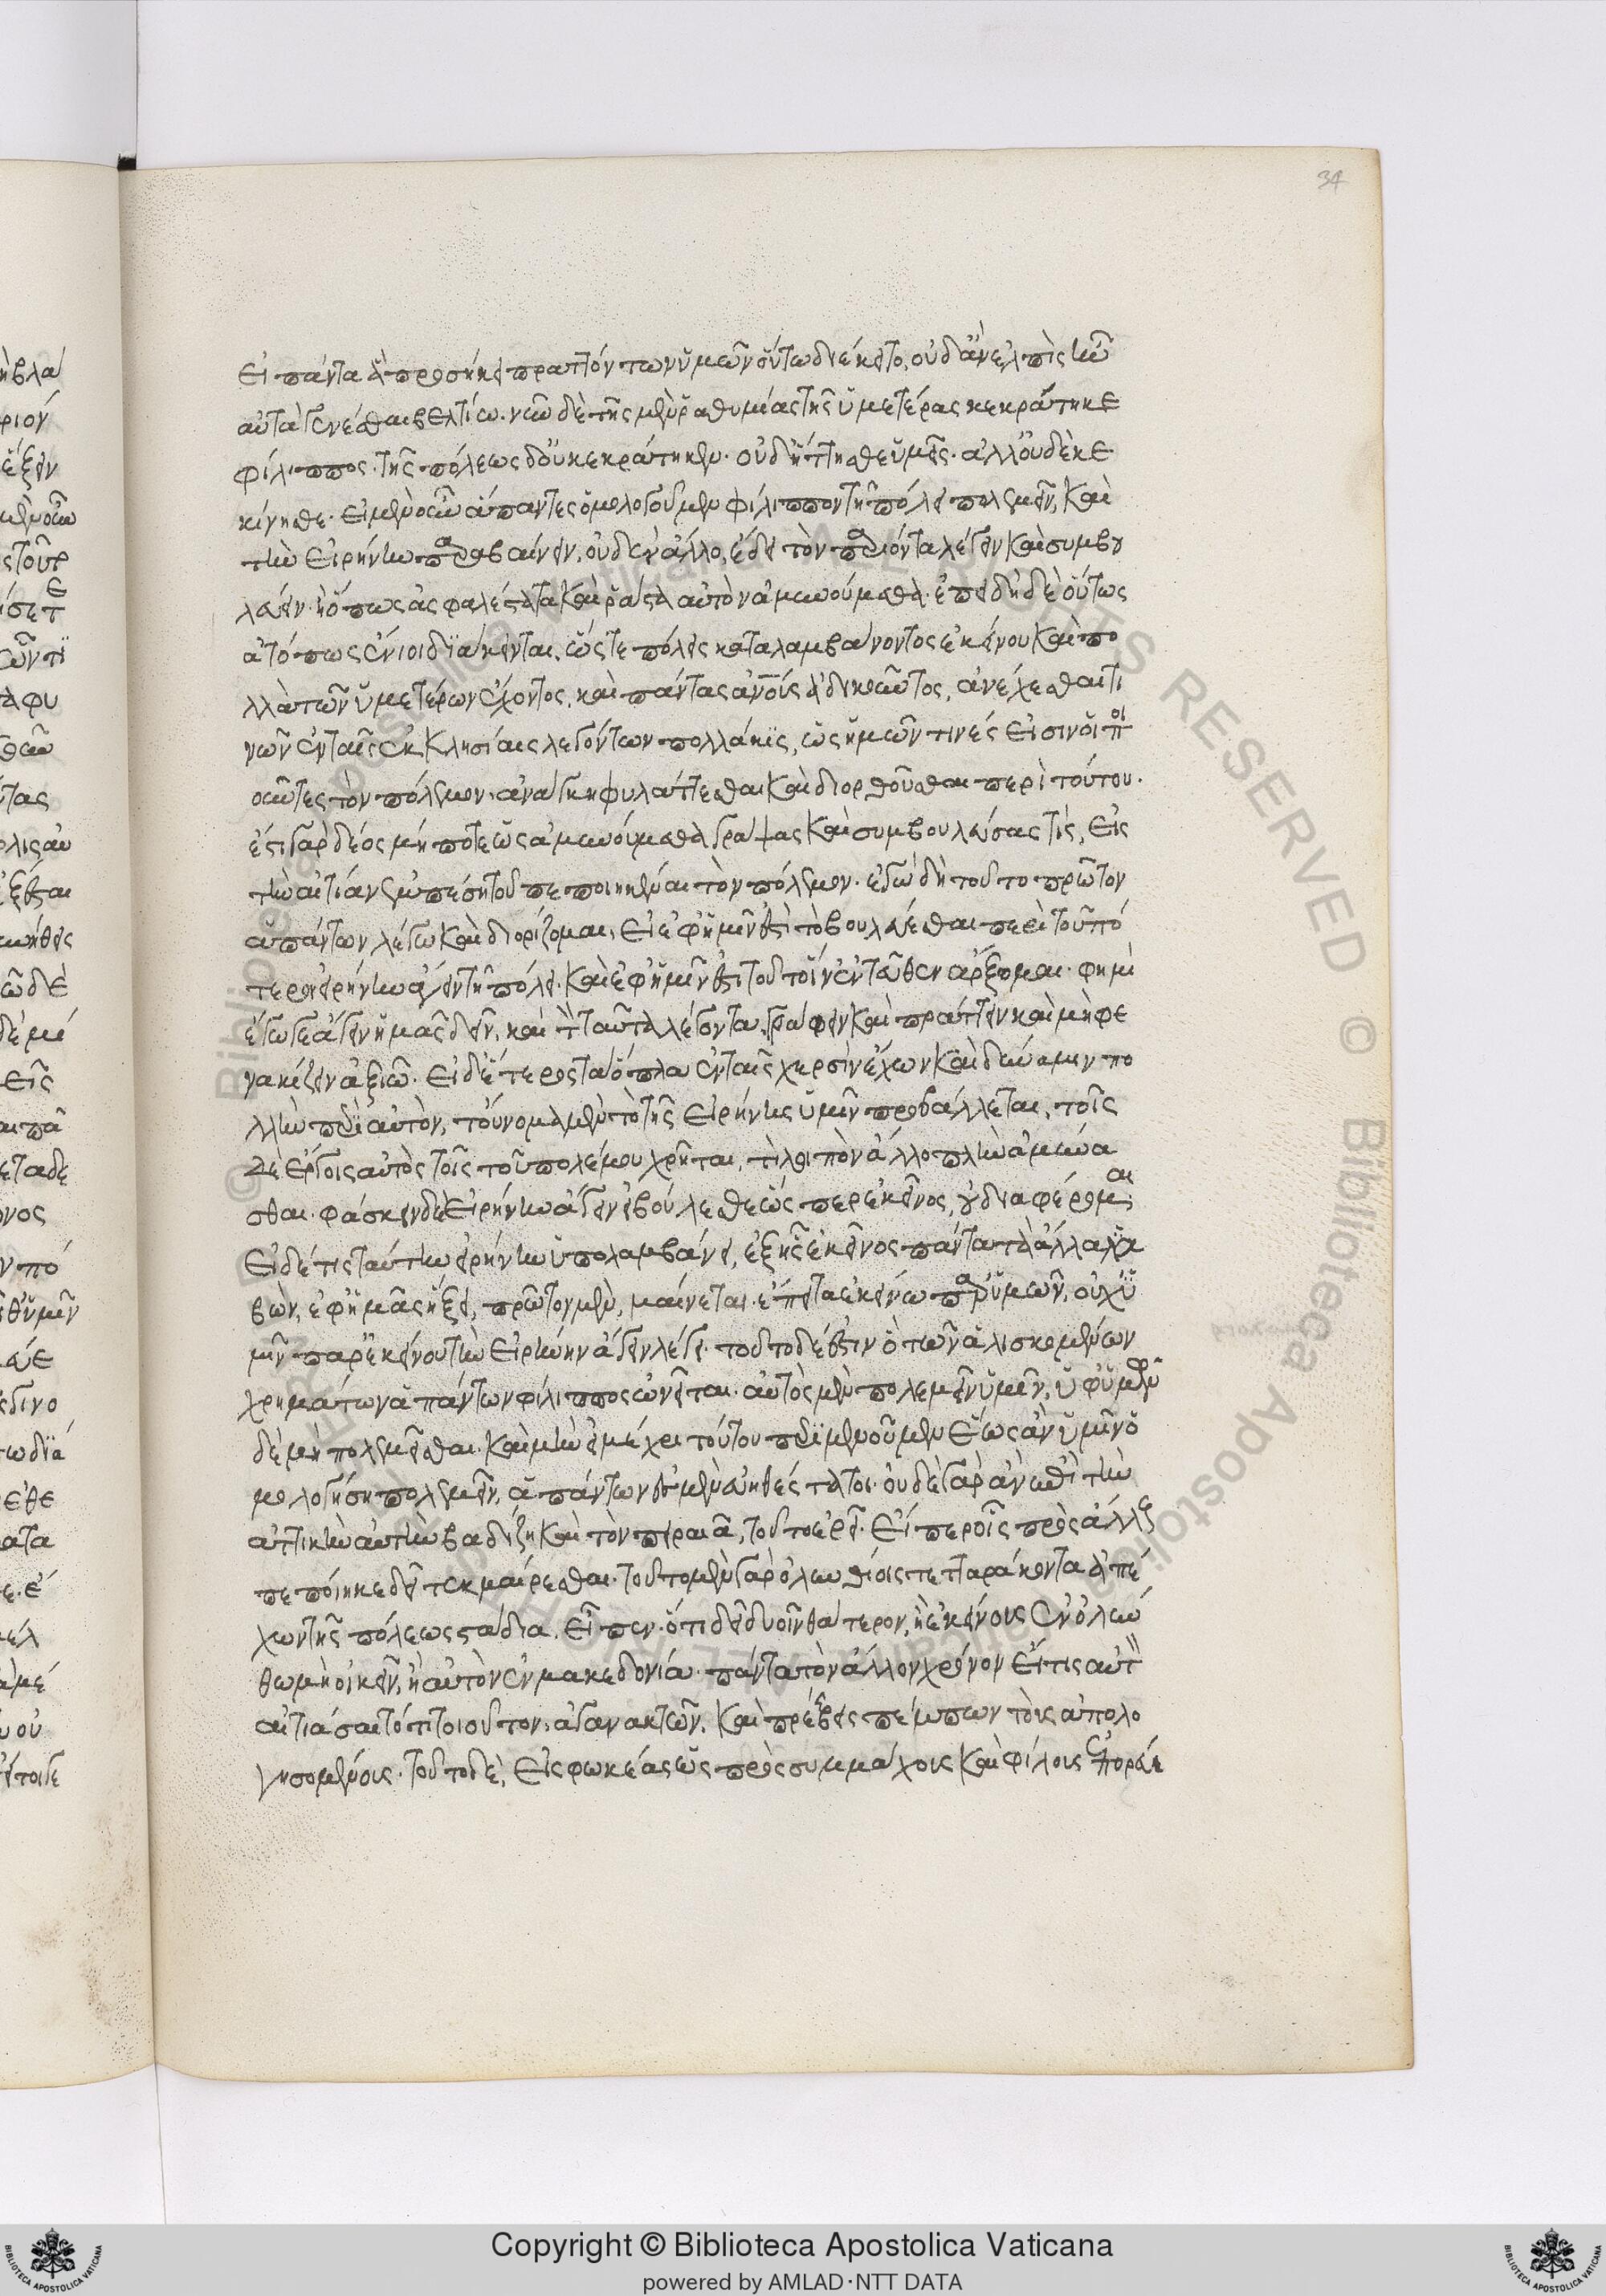 34
εἰ πάντα ἃ προσήκει πραττόντων ὑμῶν οὕτω διέκειτο, οὐδ' ἂν ἐλπὶς ἦν
αὐτὰ γενέσθαι βελτίω. νῦν δὲ τῆς μὲν ῥαθυμίας τῆς ὑμετέρας κεκράτηκε
φίλιππος. τῆς πόλεως δ' οὐ κεκράτηκεν. οὐδ' ἥττησθε ὑμεῖς. ἀλλ' οὐδὲ κε
κίνησθε. εἰ μὲν οὖν ἅπαντες ὁμολογοῦμεν φίλιππον τῇ πόλει πολεμεῖν, καὶ
τὴν εἰρήνην παραβαίνειν, οὐδὲν ἄλλο ἔδει τὸν παριόντα λέγειν καὶ συμβου
λεύειν. ἢ ὅπως ἀσφαλέστατα καὶ ῥᾷστα αὐτὸν ἀμυνούμεθα. ἐπειδὴ δὲ οὕτως
ἀτόπως ἔνιοι διάκεινται, ὥστε πόλεις καταλαμβάνοντος ἐκείνου καὶ πο
λλὰ τῶν ὑμετέρων ἔχοντος, καὶ πάντας ἀνους ἀδικοῦντος, ἀνέχεσθαί τι
νων ἐν ταῖς ἐκκλησίαις λεγόντων πολλάκις, ὡς ἡμῶν τινές εἰσιν οἱ ποι
οῦντες τὸν πόλεμον, ἀνάγκη φυλάττεσθαι καὶ διορθοῦσθαι περὶ τούτου.
ἔστι γὰρ δέος μήποτε ὡς ἀμυνούμεθα γράψας καὶ συμβουλεύσας τίς, εἰς
τὴν αἰτίαν ἐμπέσῃ τοῦ πεποιηκέναι τὸν πόλεμον. ἐγὼ δὴ τοῦτο πρῶτον
ἁπάντων λέγω καὶ διορίζομαι, εἰ ἐφ' ἡμῖν ἐστὶ τὸ βουλεύεσθαι περὶ τοῦ πό
τερον εἰρήνην ἄγειν τῇ πόλει. καὶ ἐφ' ἡμῖν ἐστι τοῦτο ἵν' ἐντεῦθεν ἄρξομαι. φημὶ
ἔγωγε ἄγειν ἡμᾶς δεῖν, καὶ τὸν ταῦτα λέγοντα, γράφειν καὶ πράττειν καὶ μὴ φε
νακίζειν ἀξιῶ. εἰ δ' ἕτερος τὰ ὅπλα ἐν ταῖς χερσὶν ἔχων καὶ δύναμιν πο
λλὴν περὶ αὑτὸν, τοὔνομα μὲν τὸ τῆς εἰρήνης ὑμῖν προβάλλεται, τοῖς
δὲ ἔργοις αὐτὸς τοῖς τοῦ πολέμου χρῆται, τί λοιπὸν ἄλλο πλὴν ἀμύνα
σθαι. φάσκειν δὲ εἰρήνην ἄγειν εἰ βούλεσθε ὥσπερ ἐκεῖνος, οὐ διαφέρομαι.
εἰ δέ τις ταύτην εἰρήνην ὑπολαμβάνει, ἐξ ἧς ἐκεῖνος πάντα τὰ ἄλλα λα
βὼν, ἐφ' ἡμᾶς ἥξει, πρῶτον μὲν, μαίνεται. ἔπειτα ἐκείνῳ παρ' ὑμῶν, οὐχ ὑ
μῖν παρ' ἐκείνου τὴν εἰρήνην ἄγειν λέγει. τοῦτο δ' ἔστιν ὃ τῶν ἀναλισκομένων
χρημάτων ἁπάντων φίλιππος ὠνεῖται. αὐτὸς μὲν πολεμεῖν ὑμῖν, ὑφ' ὑμῶν
δὲ μὴ πολεμεῖσθαι. καὶ μὴν εἰ μέχρι τούτου περιμενοῦμεν ἕως ἂν ὑμῖν ὁ
μολογήσῃ πολεμεῖν, ἁπάντων ἐσμὲν εὐηθέστατοι. οὐδὲ γὰρ ἂν ἐπὶ τὴν
ἀττικὴν αὐτὴν βαδίζῃ καὶ τὸν πειραιᾶ, τοῦτο ἐρεῖ. εἴπερ οἷς πρὸς ἄλλους
πεποίηκε δεῖ τεκμαίρεσθαι. τοῦτο μὲν γὰρ ὀλυνθίοις τετταράκοντα ἀπέ
χων τῆς πόλεως στάδια, εἶπεν. ὅτι δεῖ δυοῖν θάτερον, ἢ ἐκείνους ἐν ὀλύν
θῳ μὴ οἰκεῖν, ἢ αὐτὸν ἐν μακεδονίᾳ. πάντα τὸν ἄλλον χρόνον εἴ τις αὐτὸν
αἰτιάσαιτό τι τοιοῦτον, ἀγανακτῶν, καὶ πρέσβεις πέμπων τοὺς ἀπολο
γησομένους. τοῦτο δὲ, εἰς φωκέας ὡς πρὸς συμμάχους καὶ φίλους ἐπορεύε